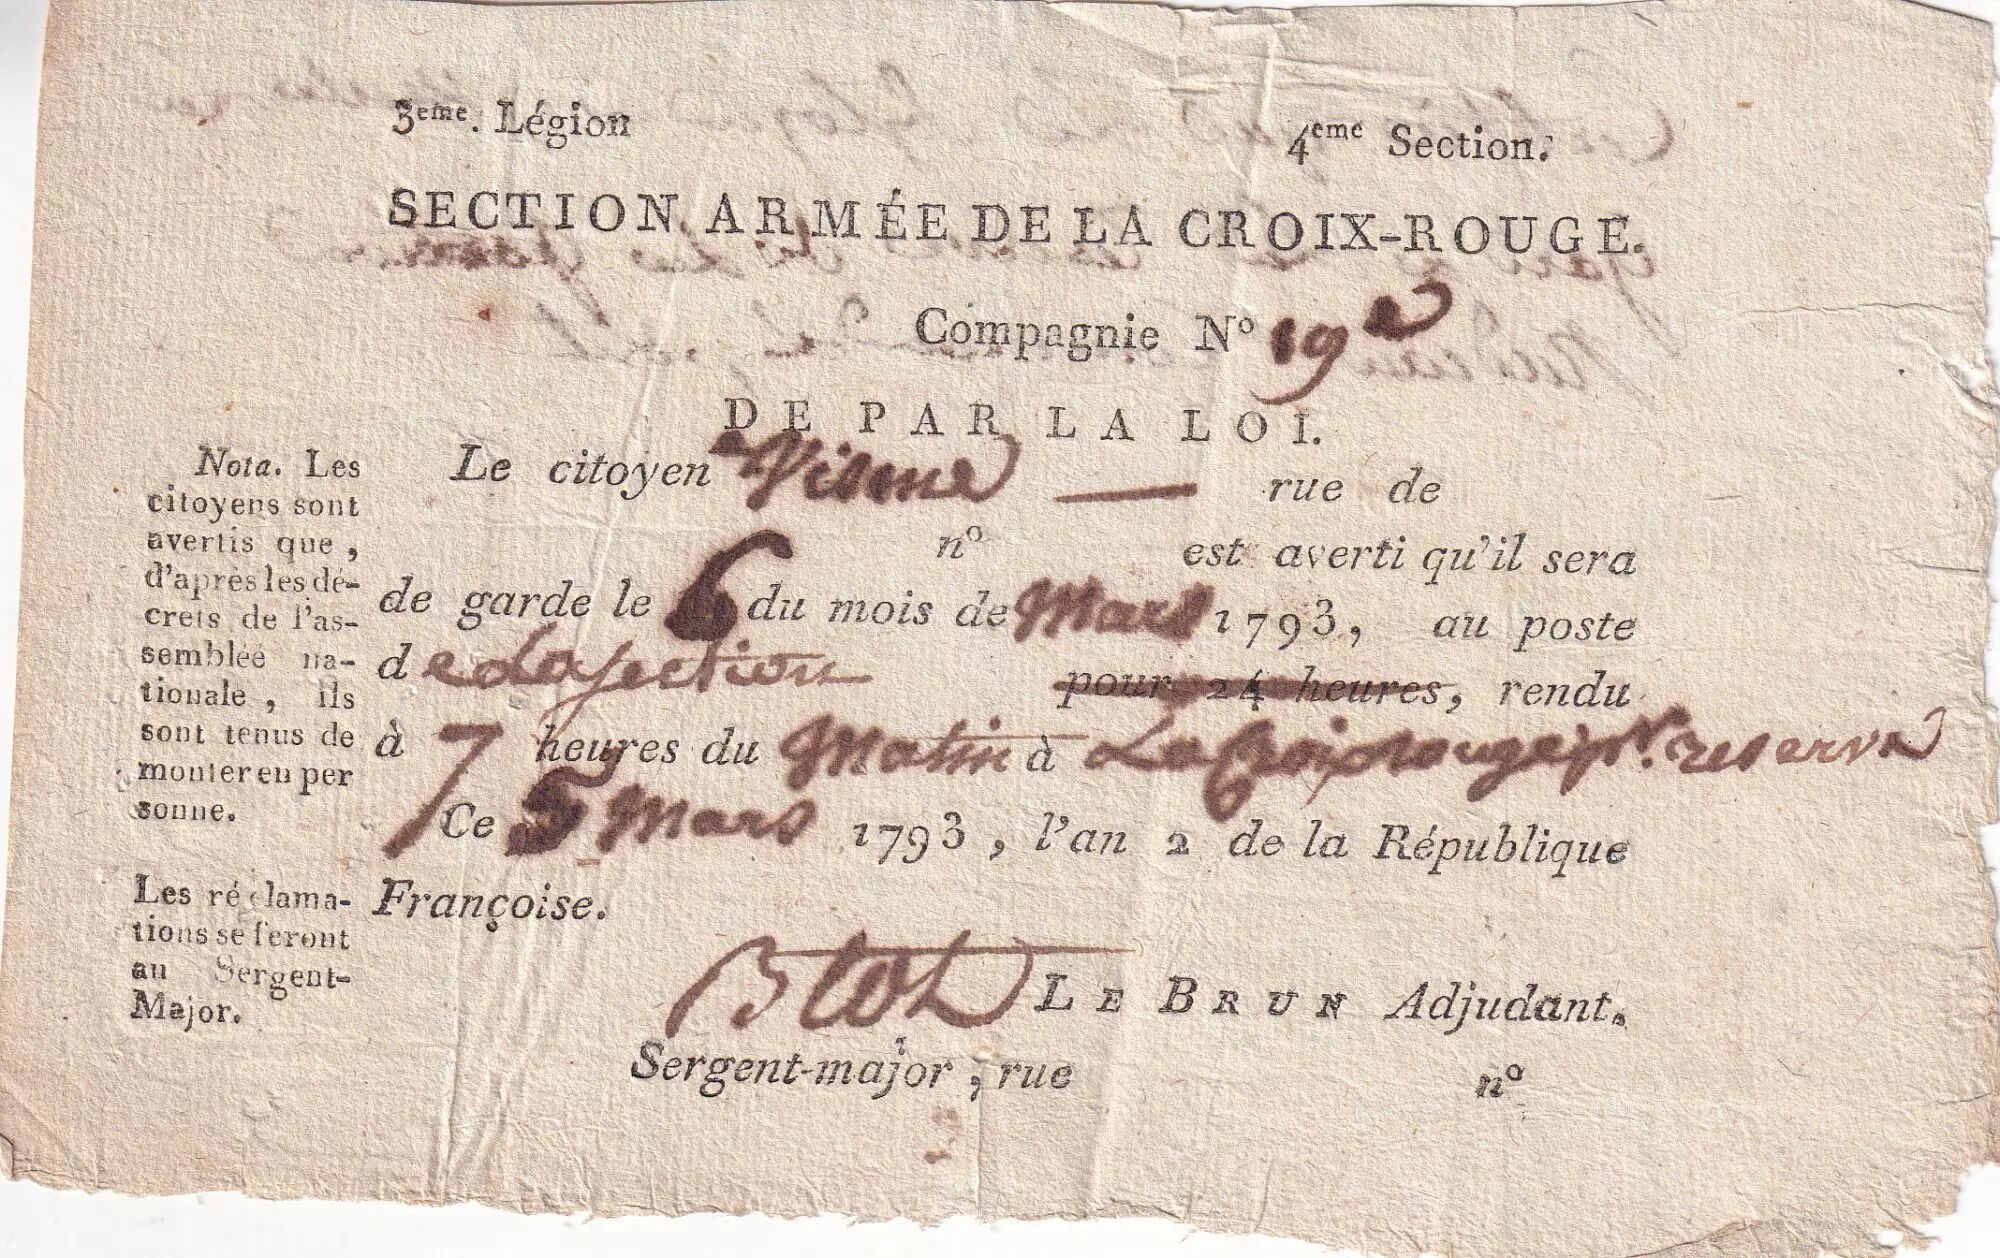 3eme. Légion
4eme Section.
SECTION ARMÉE DE LA CROIX-ROUGE.
Compagnie No 19e
DE PAR LA LOI.
Le citoyen Visme — rue de
no est averti qu'il sera
de garde le 6 du mois de Mars 1793, au poste
de La section pour 24 heures, rendu
à 7 heures du Matin à La Croix rouge pr. reserve
Ce 5 Mars 1793, l'an 2 de la République
Françoise.
LE BRUN Adjudant.
Sergent-major, rue no
Nota. Les
citoyens sont
avertis que,
d'après les dé-
crets de l'as-
semblée na-
tionale, ils
sont tenus de
monter en per
sonne.
Les réclama-
tions se feront
au Sergent-
Major.